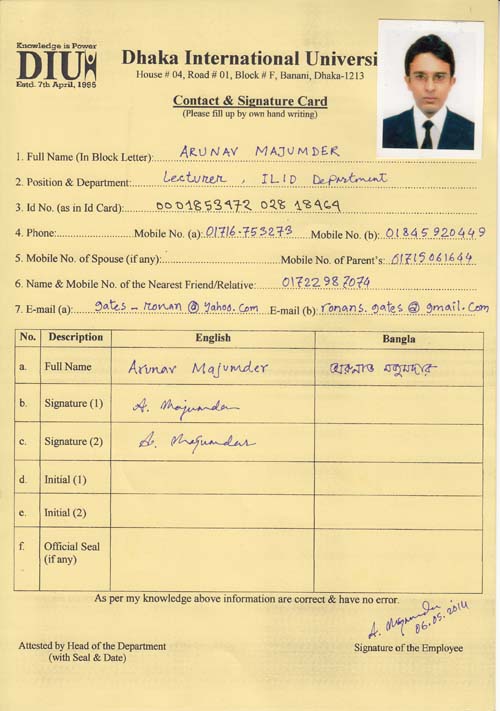 Knowledge is Power
DIU
Estd. 7th April, 1995
Dhaka International Universi
House # 04, Road # 01, Block # F, Banani, Dhaka-1213
Contact & Signature Card
(Please fill up by own hand writing)
1. Full Name (In Block Letter): ARUNAV MAJUMDER
2. Position & Department: Lecturer, ILID Department
3. Id No. (as in Id Card): 0001853472 028 18464
4. Phone: Mobile No. (a): 01716-753273 Mobile No. (b): 01845920449
5. Mobile No. of Spouse (if any): Mobile No. of Parent's: 01715061644
6. Name & Mobile No. of the Nearest Friend/Relative: 01722987074
7. E-mail (a): gates-ronan@yahoo.com E-mail (b): ronans.gates@gmail.com
No. Description English Bangla
a. Full Name Arunav Majumder
b. Signature (1) A. Majumder
c. Signature (2) A. Majumder
d. Initial (1)
e. Initial (2)
f. Official Seal
(if any)
As per my knowledge above information are correct & have no error.
A. Majumder
06.05.2014
Attested by Head of the Department Signature of the Employee
(with Seal & Date)